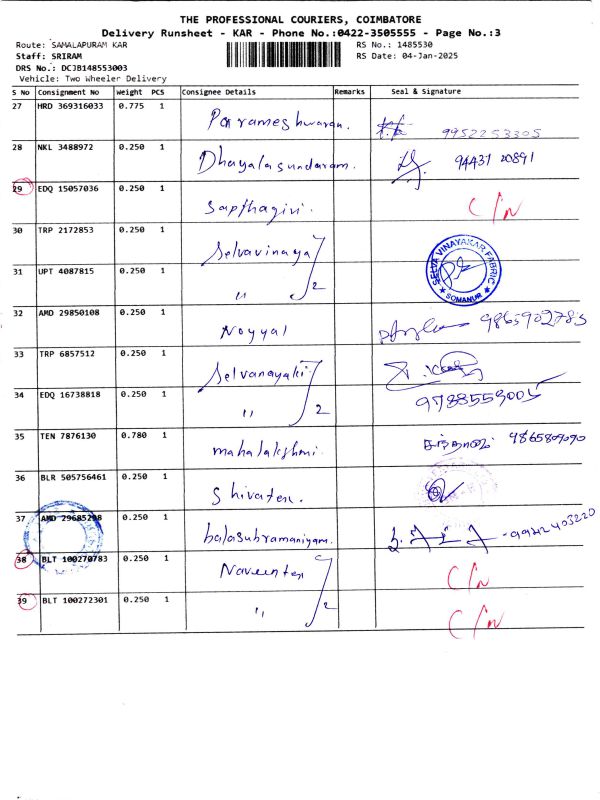 THE PROFESSIONAL COURIERS, COIMBATORE
Delivery Runsheet - KAR - Phone No.:0422-3505555 - Page No.:3
Route: SAMALAPURAM KAR RS No.: 1485530
Staff: SRIRAM RS Date: 04-Jan-2025
DRS No.: DCJB148553003
Vehicle: Two Wheeler Delivery
S No Consignment No Weight PCS Consignee Details Remarks Seal & Signature
27 HRD 369316033 0.775 1 Parameshwaran. 9952253305
28 NKL 3488972 0.250 1 Dhayalasundaram. 94431 20891
29 EDQ 15057036 0.250 1 Sapthagiri. C/N
30 TRP 2172853 0.250 1 Selvavinaya
SELVA VINAYAKAR FABRIC
SOMANUR
31 UPT 4087815 0.250 1 " 2
32 AMD 29850108 0.250 1 Noyyal 9865902783
33 TRP 6857512 0.250 1 Selvanayaki
34 EDQ 16738818 0.250 1 " 2 9788553005
35 TEN 7876130 0.780 1 mahalakshmi. 9865809090
36 BLR 505756461 0.250 1 Shivatex.
37 AMD 29685298 0.250 1 balasubramaniyam.
38 BLT 100270783 0.250 1 Naveentex C/N
39 BLT 100272301 0.250 1 " 2 C/N